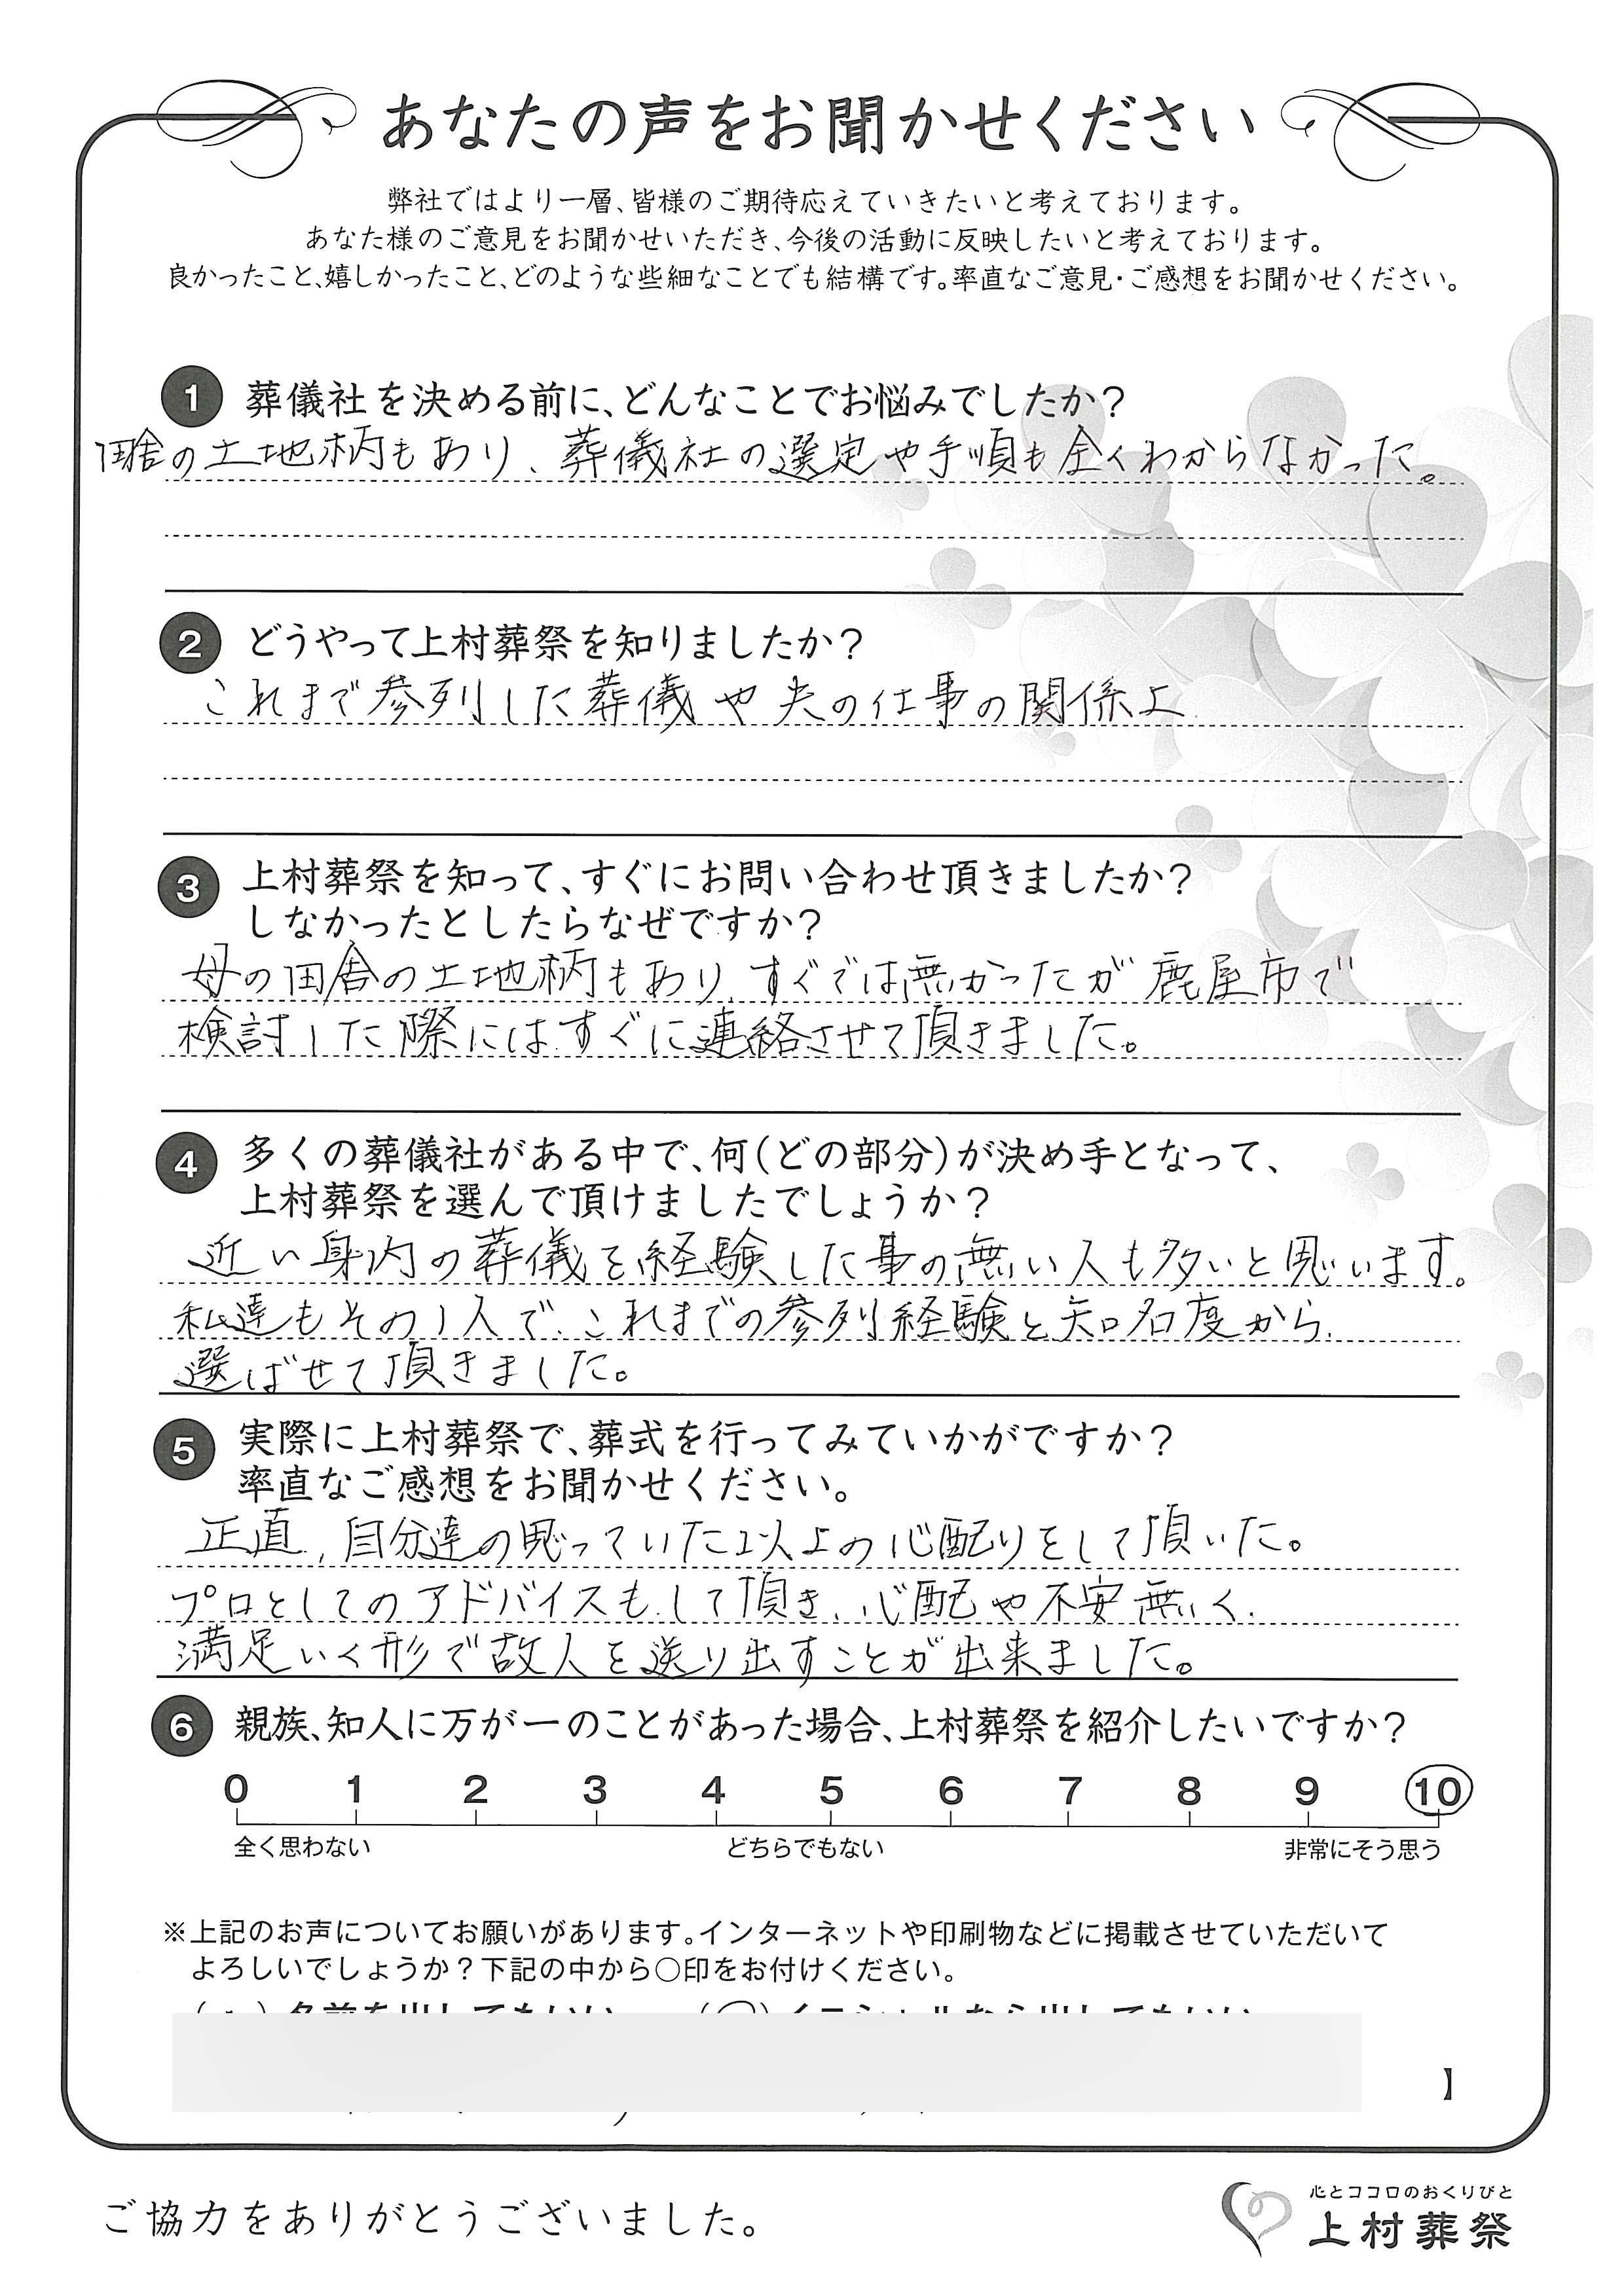 あなたの声をお聞かせください
弊社ではより一層、皆様のご期待応えていきたいと考えております。
あなた様のご意見をお聞かせいただき、今後の活動に反映したいと考えております。
良かったこと、嬉しかったこと、どのような些細なことでも結構です。率直なご意見・ご感想をお聞かせください。
1 葬儀社を決める前に、どんなことでお悩みでしたか？
田舎の土地柄もあり、葬儀社の選定や手順も全くわからなかった。
2 どうやって上村葬祭を知りましたか？
これまで参列した葬儀や夫の仕事の関係上
3 上村葬祭を知って、すぐにお問い合わせ頂きましたか？
しなかったとしたらなぜですか？
母の田舎の土地柄もあり、すぐでは無かったが鹿屋市で
検討した際にはすぐに連絡させて頂きました。
4 多くの葬儀社がある中で、何（どの部分）が決め手となって、
上村葬祭を選んで頂けましたでしょうか？
近い身内の葬儀を経験した事の無い人も多いと思います。
私達もその1人で、これまでの参列経験と知名度から、
選ばせて頂きました。
5 実際に上村葬祭で、葬式を行ってみていかがですか？
率直なご感想をお聞かせください。
正直、自分達の思っていた以上の心配りをして頂いた。
プロとしてのアドバイスもして頂き、心配や不安無く、
満足いく形で故人を送り出すことが出来ました。
6 親族、知人に万が一のことがあった場合、上村葬祭を紹介したいですか？
0 1 2 3 4 5 6 7 8 9 10
全く思わない どちらでもない 非常にそう思う
※上記のお声についてお願いがあります。インターネットや印刷物などに掲載させていただいて
よろしいでしょうか？下記の中から○印をお付けください。
】
ご協力をありがとうございました。
心とココロのおくりびと
上村葬祭